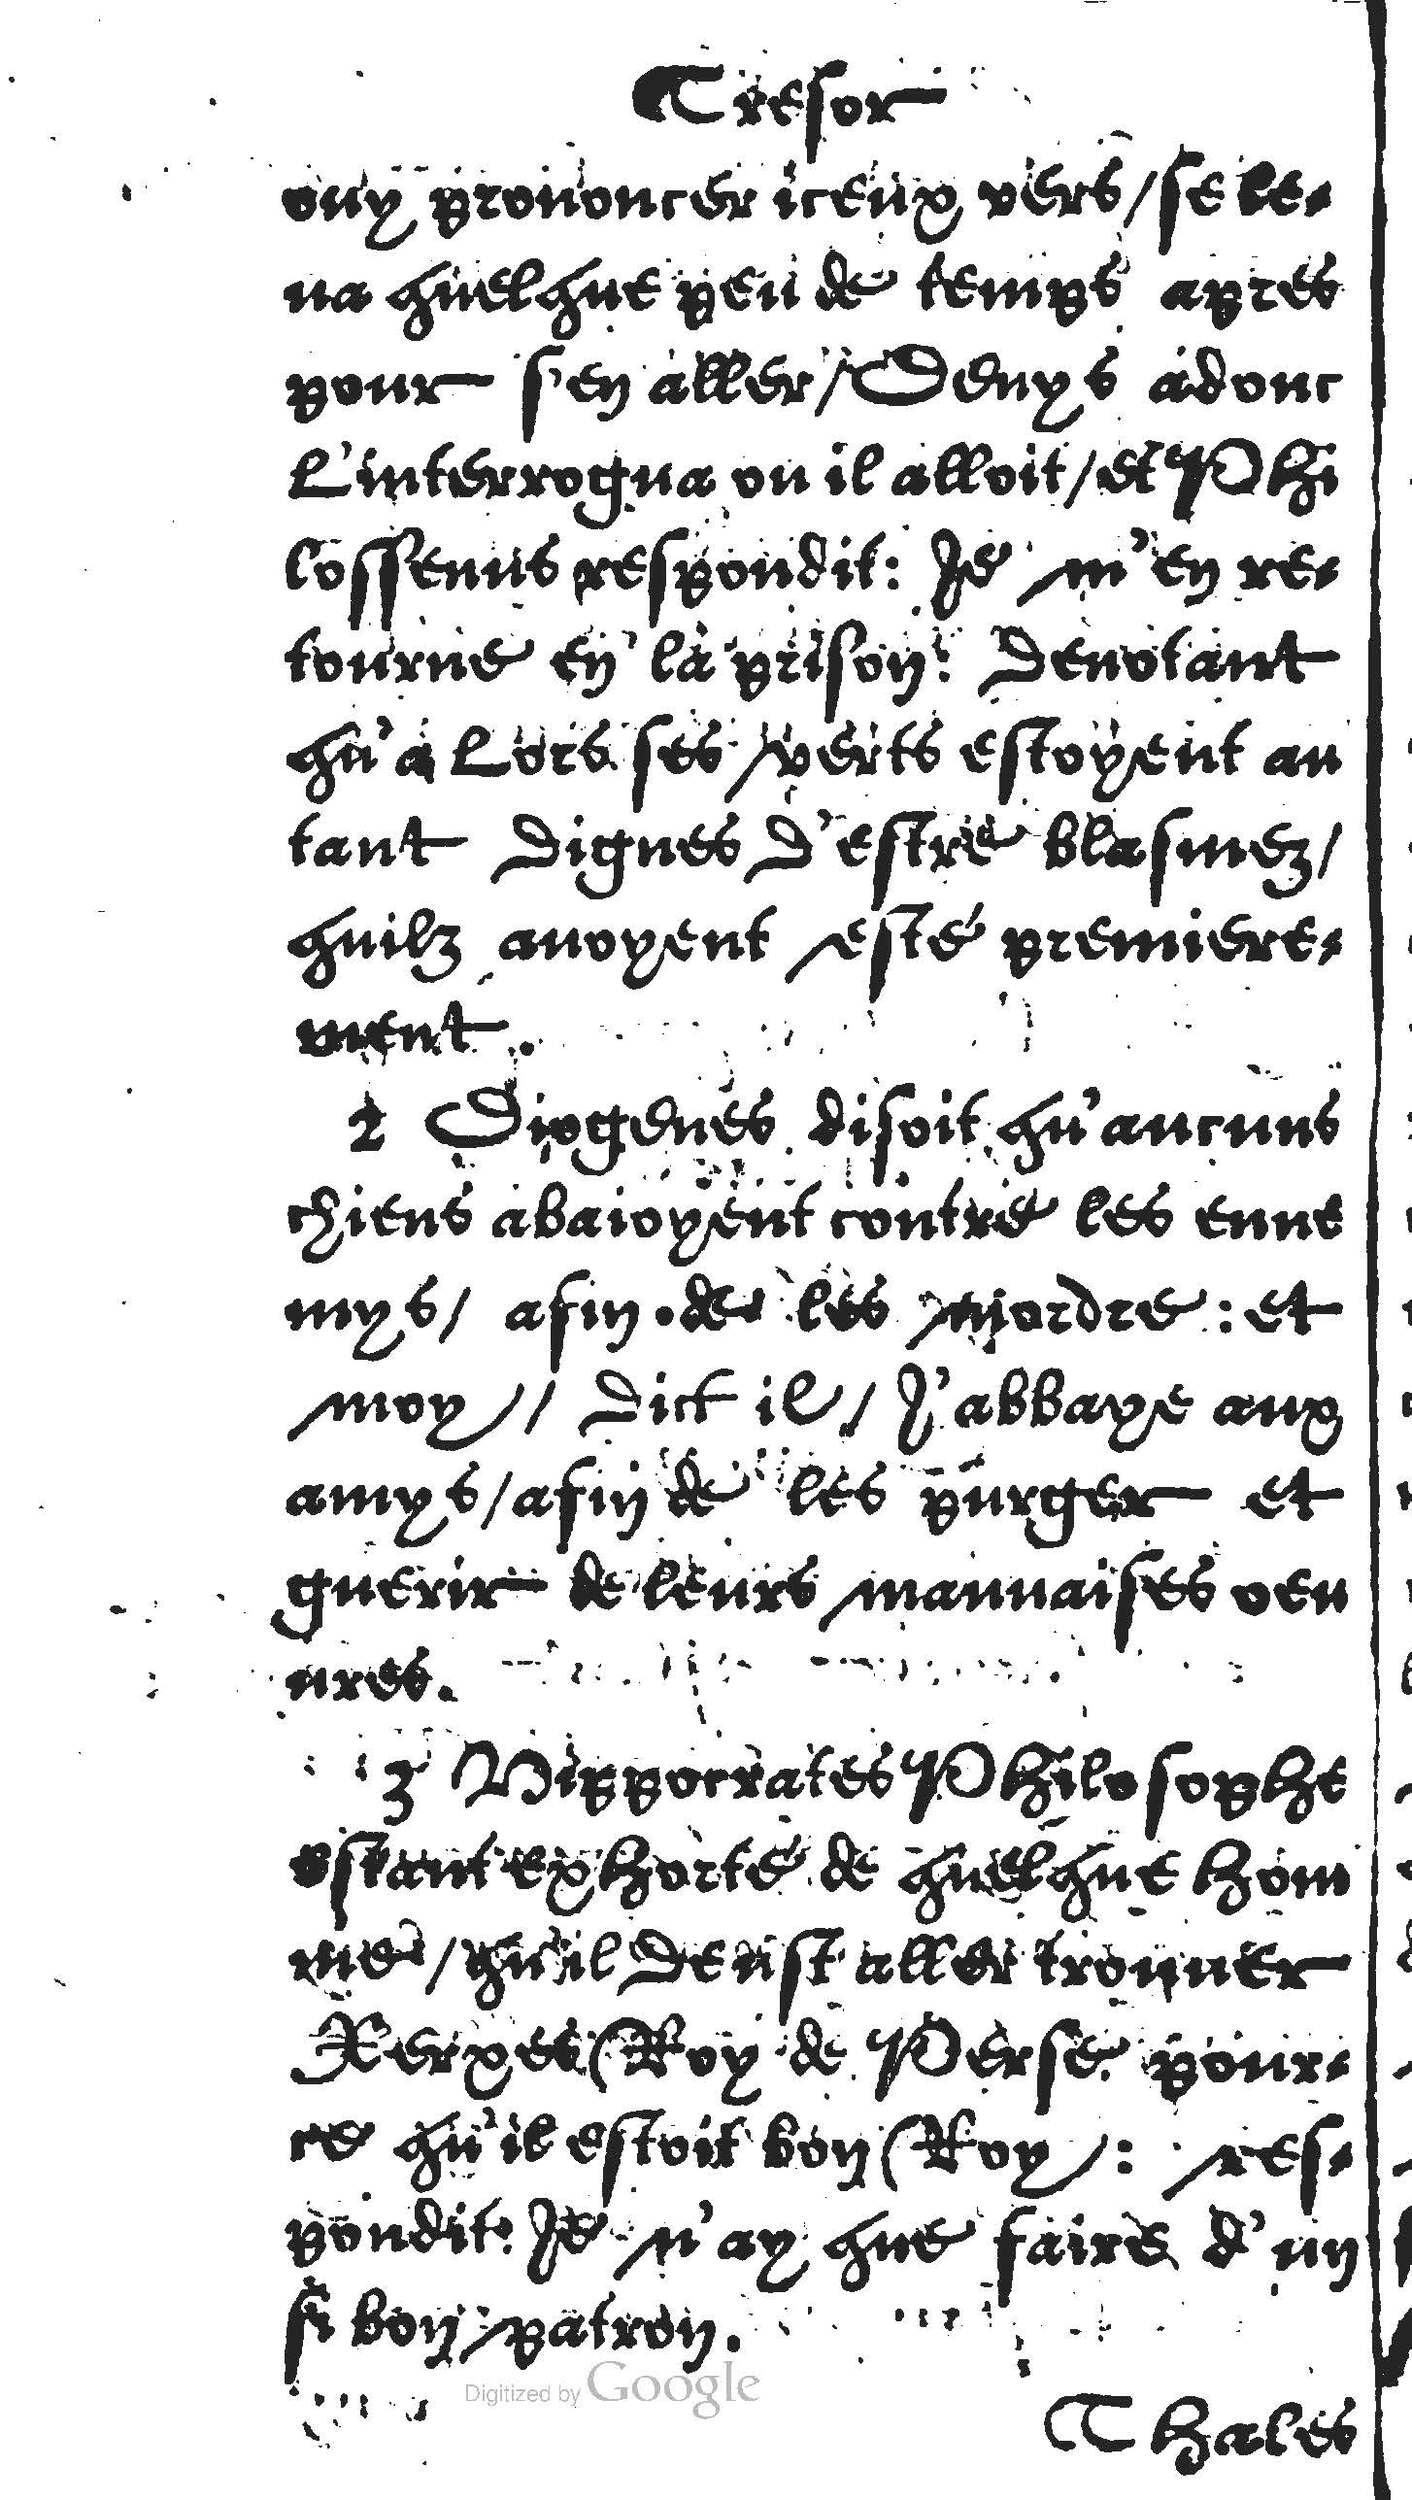 Tresor
ouy prononcer iceux vers/se le-
ua quelque peu de temps apres
pour s'en aller/Denys adonc
L'interrogua ou il alloit/et Phi
lossenus respondit: Je m'en re-
tourne en la prison: Denotant
qu'a Lors ses verts estoyent au
tant dignes d'estre blasmez/
quilz auoyent esté premiere-
ment.
2 Diogenes disoit qu'aucuns
chiens abaioyent contre les enne
mys/ afin de les mordre: et
moy// dict il/ J'abbaye aux
amys/afin de les purger et
guerir de leurs mauuaises oeu
ures.
3 Hippocrates Philosophe
estant exhorté de quelque hom
me/qu'il deust aller trouuer
Xerxes Roy de Perse pour-
ce qu'il estoit bon Roy: res-
pondit: Je n'ay que faire d'un
si bon patron.
Digitized by Google
Thales